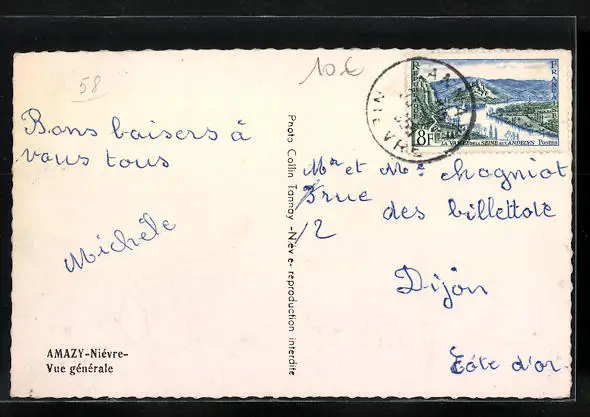 58
10€
Bons baisers à
vous tous
Michèle
AMAZY-Niévre-
Vue générale
Photo Collin Tannay -Nièvre- reproduction interdite
REPUBLIQUE FRANÇAISE
8F
LA VALLÉE DE LA SEINE AUX ANDELYS POSTES
NIEVRE
Mr et Me Chagniot
3 rue des billettole
12
Dijon
Côte d'or